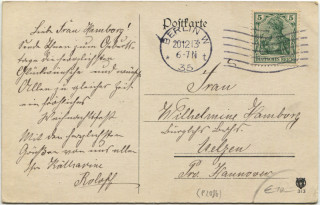 Postkarte
Liebe Frau Hamborg!
Sende Ihnen zum Geburts-
tage die herzlichsten
Glückwünsche und wünsche
Allen zu gleicher Zeit
ein fröhliches
Weihnachtsfest
Mit den herzlichsten
Grüßen von uns allen
Ihre Katharine
Roloff
BERLIN W
20.12.13
6-7 N
35
5 5
DEUTSCHES REICH
Frau
Wilhelmine Hamborg
Uelzen
Prov. Hannover